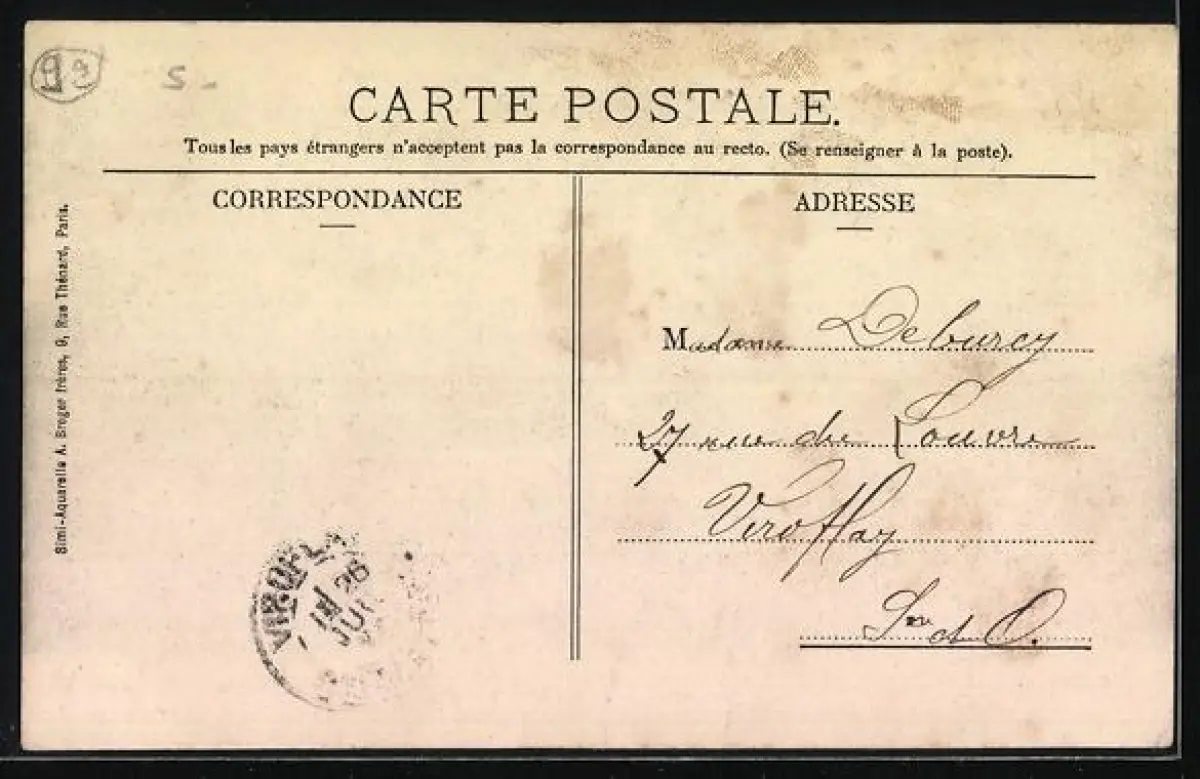 93
5-
CARTE POSTALE.
Tous les pays étrangers n'acceptent pas la correspondance au recto. (Se renseigner à la poste).
CORRESPONDANCE
ADRESSE
Simi-Aquarelle A. Breger frères, 9, Rue Thénard, Paris.
Madame Deburcy
27 rue du Louvre
Viroflay
S. et O.
VIROFLA
26
JU